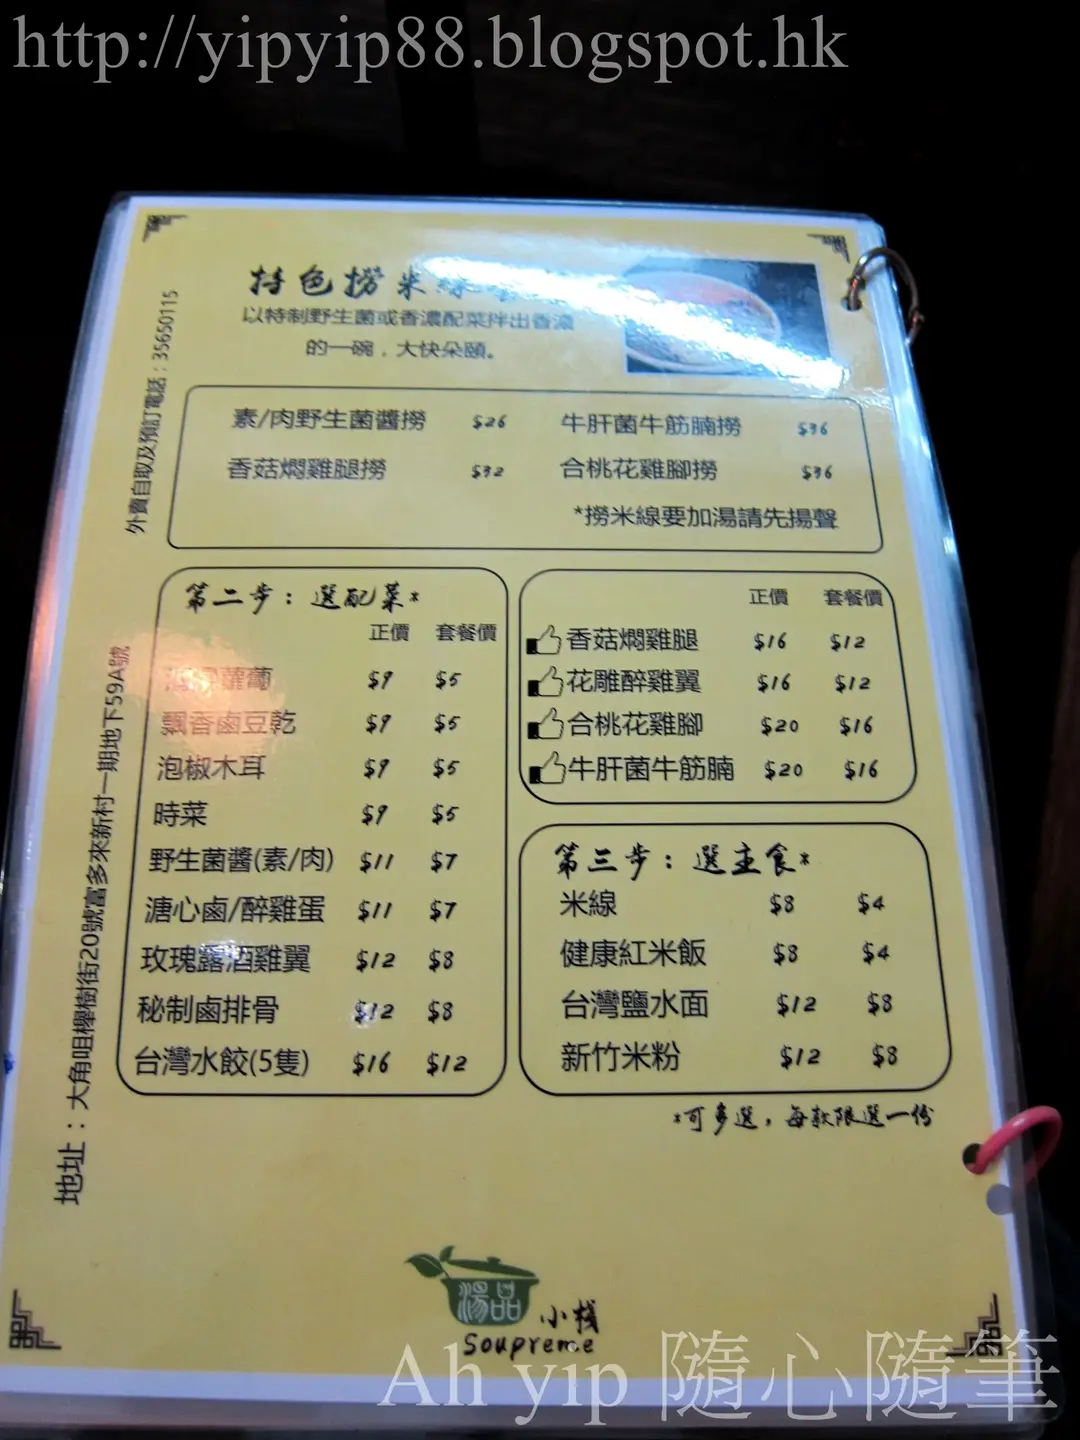 http://yipyip88.blogspot.hk
特色撈米線
以特制野生菌或香濃配菜拌出香濃
的一碗，大快朵頤。
外賣自取及預訂電話：35650115
素/肉野生菌醬撈 $26 牛肝菌牛筋腩撈 $36
香菇燜雞腿撈 $32 合桃花雞腳撈 $36
*撈米線要加湯請先揚聲
地址：大角咀櫸樹街20號富多來新村一期地下59A號
第二步：選配菜*
正價 套餐價
蘿蔔 $9 $5
飄香鹵豆乾 $9 $5
泡椒木耳 $9 $5
時菜 $9 $5
野生菌醬(素/肉) $11 $7
溏心鹵/醉雞蛋 $11 $7
玫瑰露酒雞翼 $12 $8
秘制鹵排骨 $12 $8
台灣水餃(5隻) $16 $12
正價 套餐價
香菇燜雞腿 $16 $12
花雕醉雞翼 $16 $12
合桃花雞腳 $20 $16
牛肝菌牛筋腩 $20 $16
第三步：選主食*
米線 $8 $4
健康紅米飯 $8 $4
台灣鹽水面 $12 $8
新竹米粉 $12 $8
*可多選，每款限選一份
湯品小棧
Soupreme
Ah yip 隨心隨筆